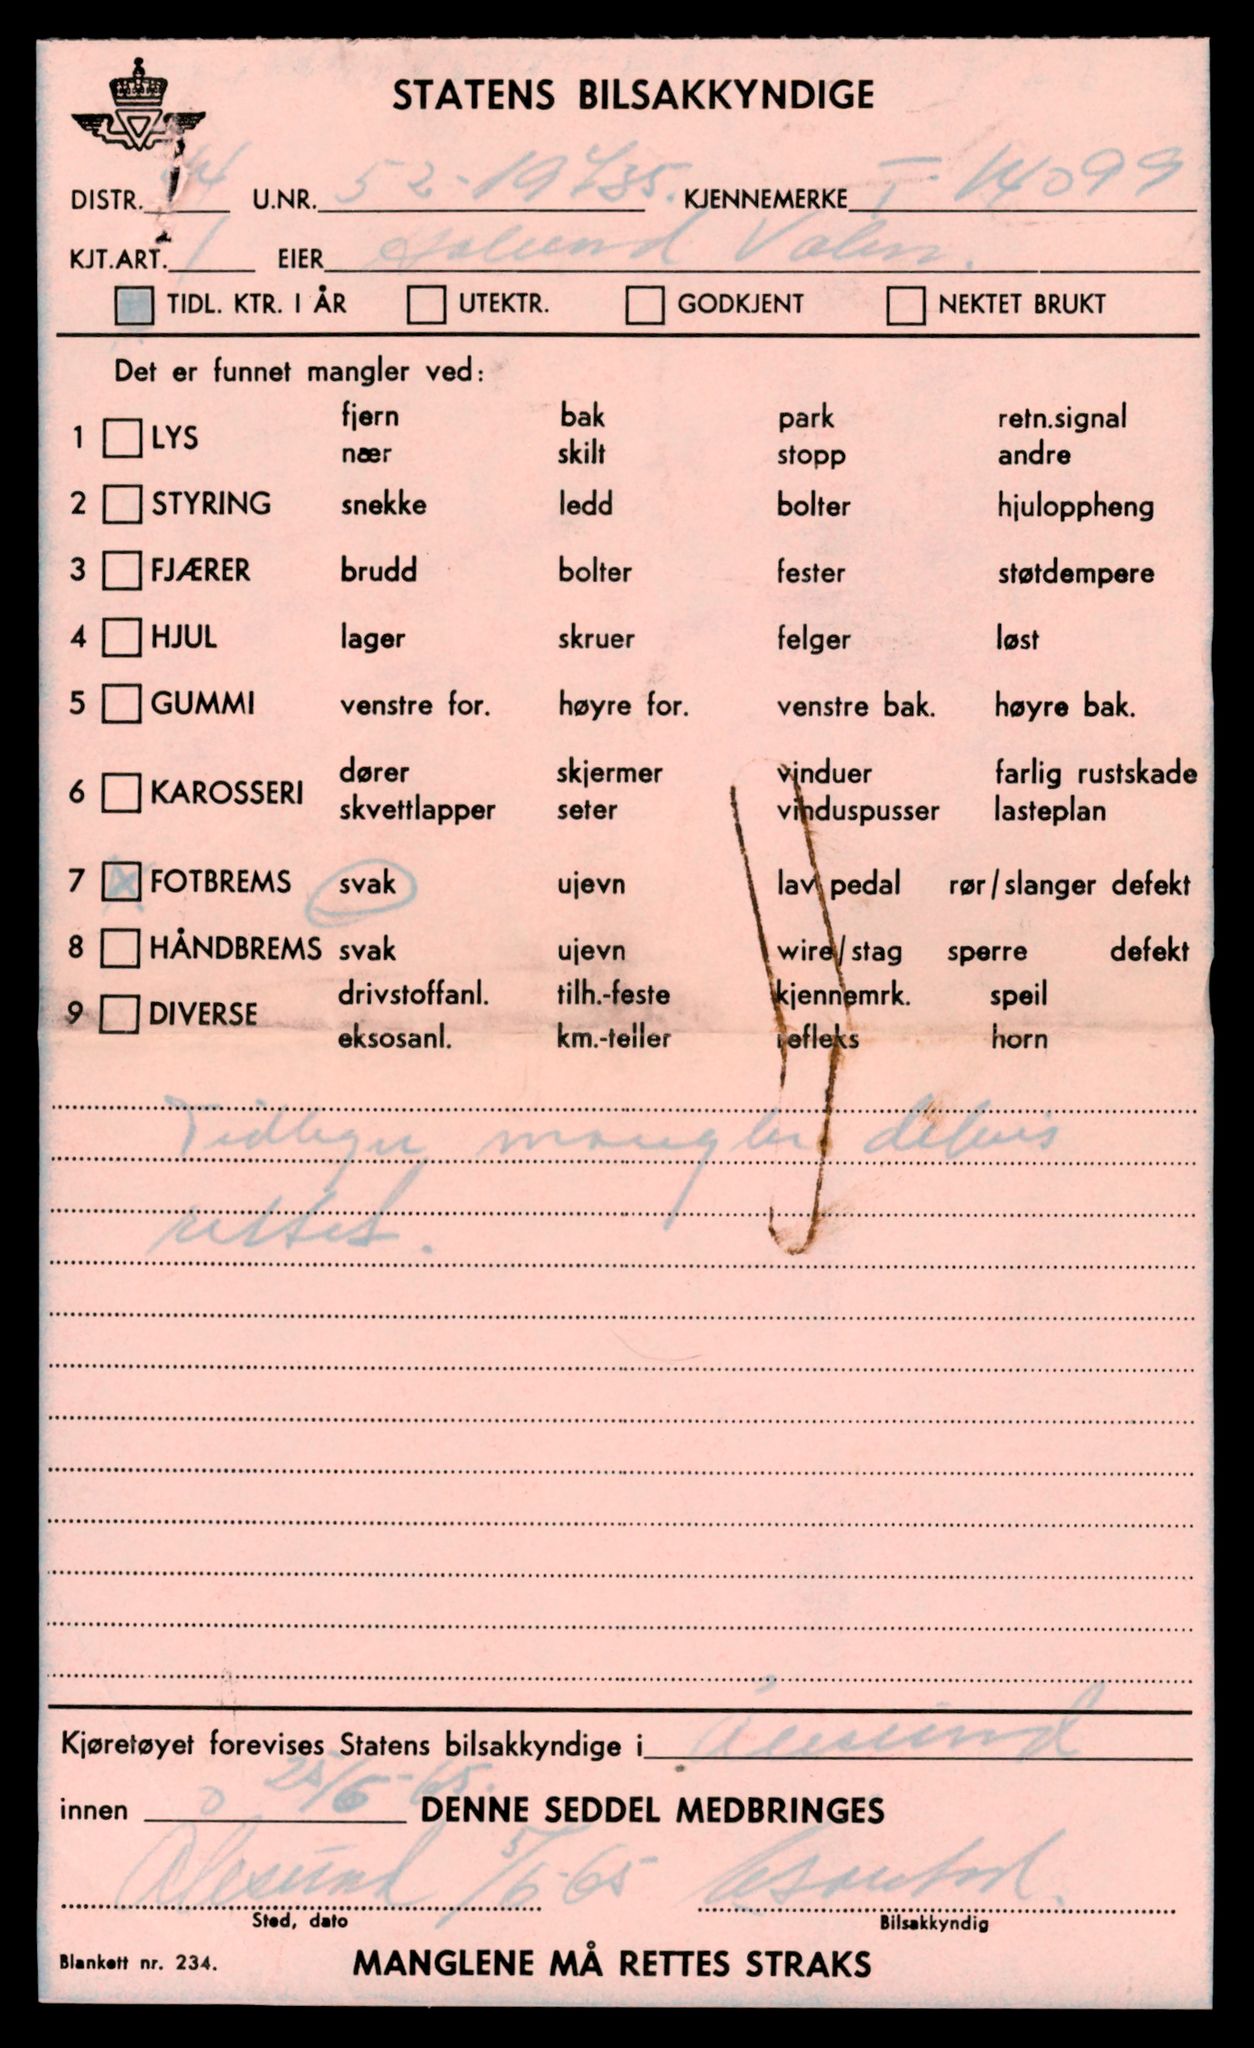 STATENS BILSAKKYNDIGE
DISTR. 14 U.NR. 52-19735. KJENNEMERKE T-14099
KJT.ART. 1 EIER Valen.
TIDL. KTR. I ÅR UTEKTR. GODKJENT NEKTET BRUKT
Det er funnet mangler ved:
1 LYS fjern bak park retn.signal
nær skilt stopp andre
2 STYRING snekke ledd bolter hjuloppheng
3 FJÆRER brudd bolter fester støtdempere
4 HJUL lager skruer felger løst
5 GUMMI venstre for. høyre for. venstre bak. høyre bak.
6 KAROSSERI dører skjermer vinduer farlig rustskade
skvettlapper seter vinduspusser lasteplan
7 X FOTBREMS svak ujevn lav pedal rør/slanger defekt
8 HÅNDBREMS svak ujevn wire/stag sperre defekt
9 DIVERSE drivstoffanl. tilh.-feste kjennemrk. speil
eksosanl. km.-teller refleks horn
Tidligere mangler delvis
rettet.
Kjøretøyet forevises Statens bilsakkyndige i Ålesund
innen 25/6-65. DENNE SEDDEL MEDBRINGES
Ålesund 5/6-65
Sted, dato Bilsakkyndig
Blankett nr. 234. MANGLENE MÅ RETTES STRAKS